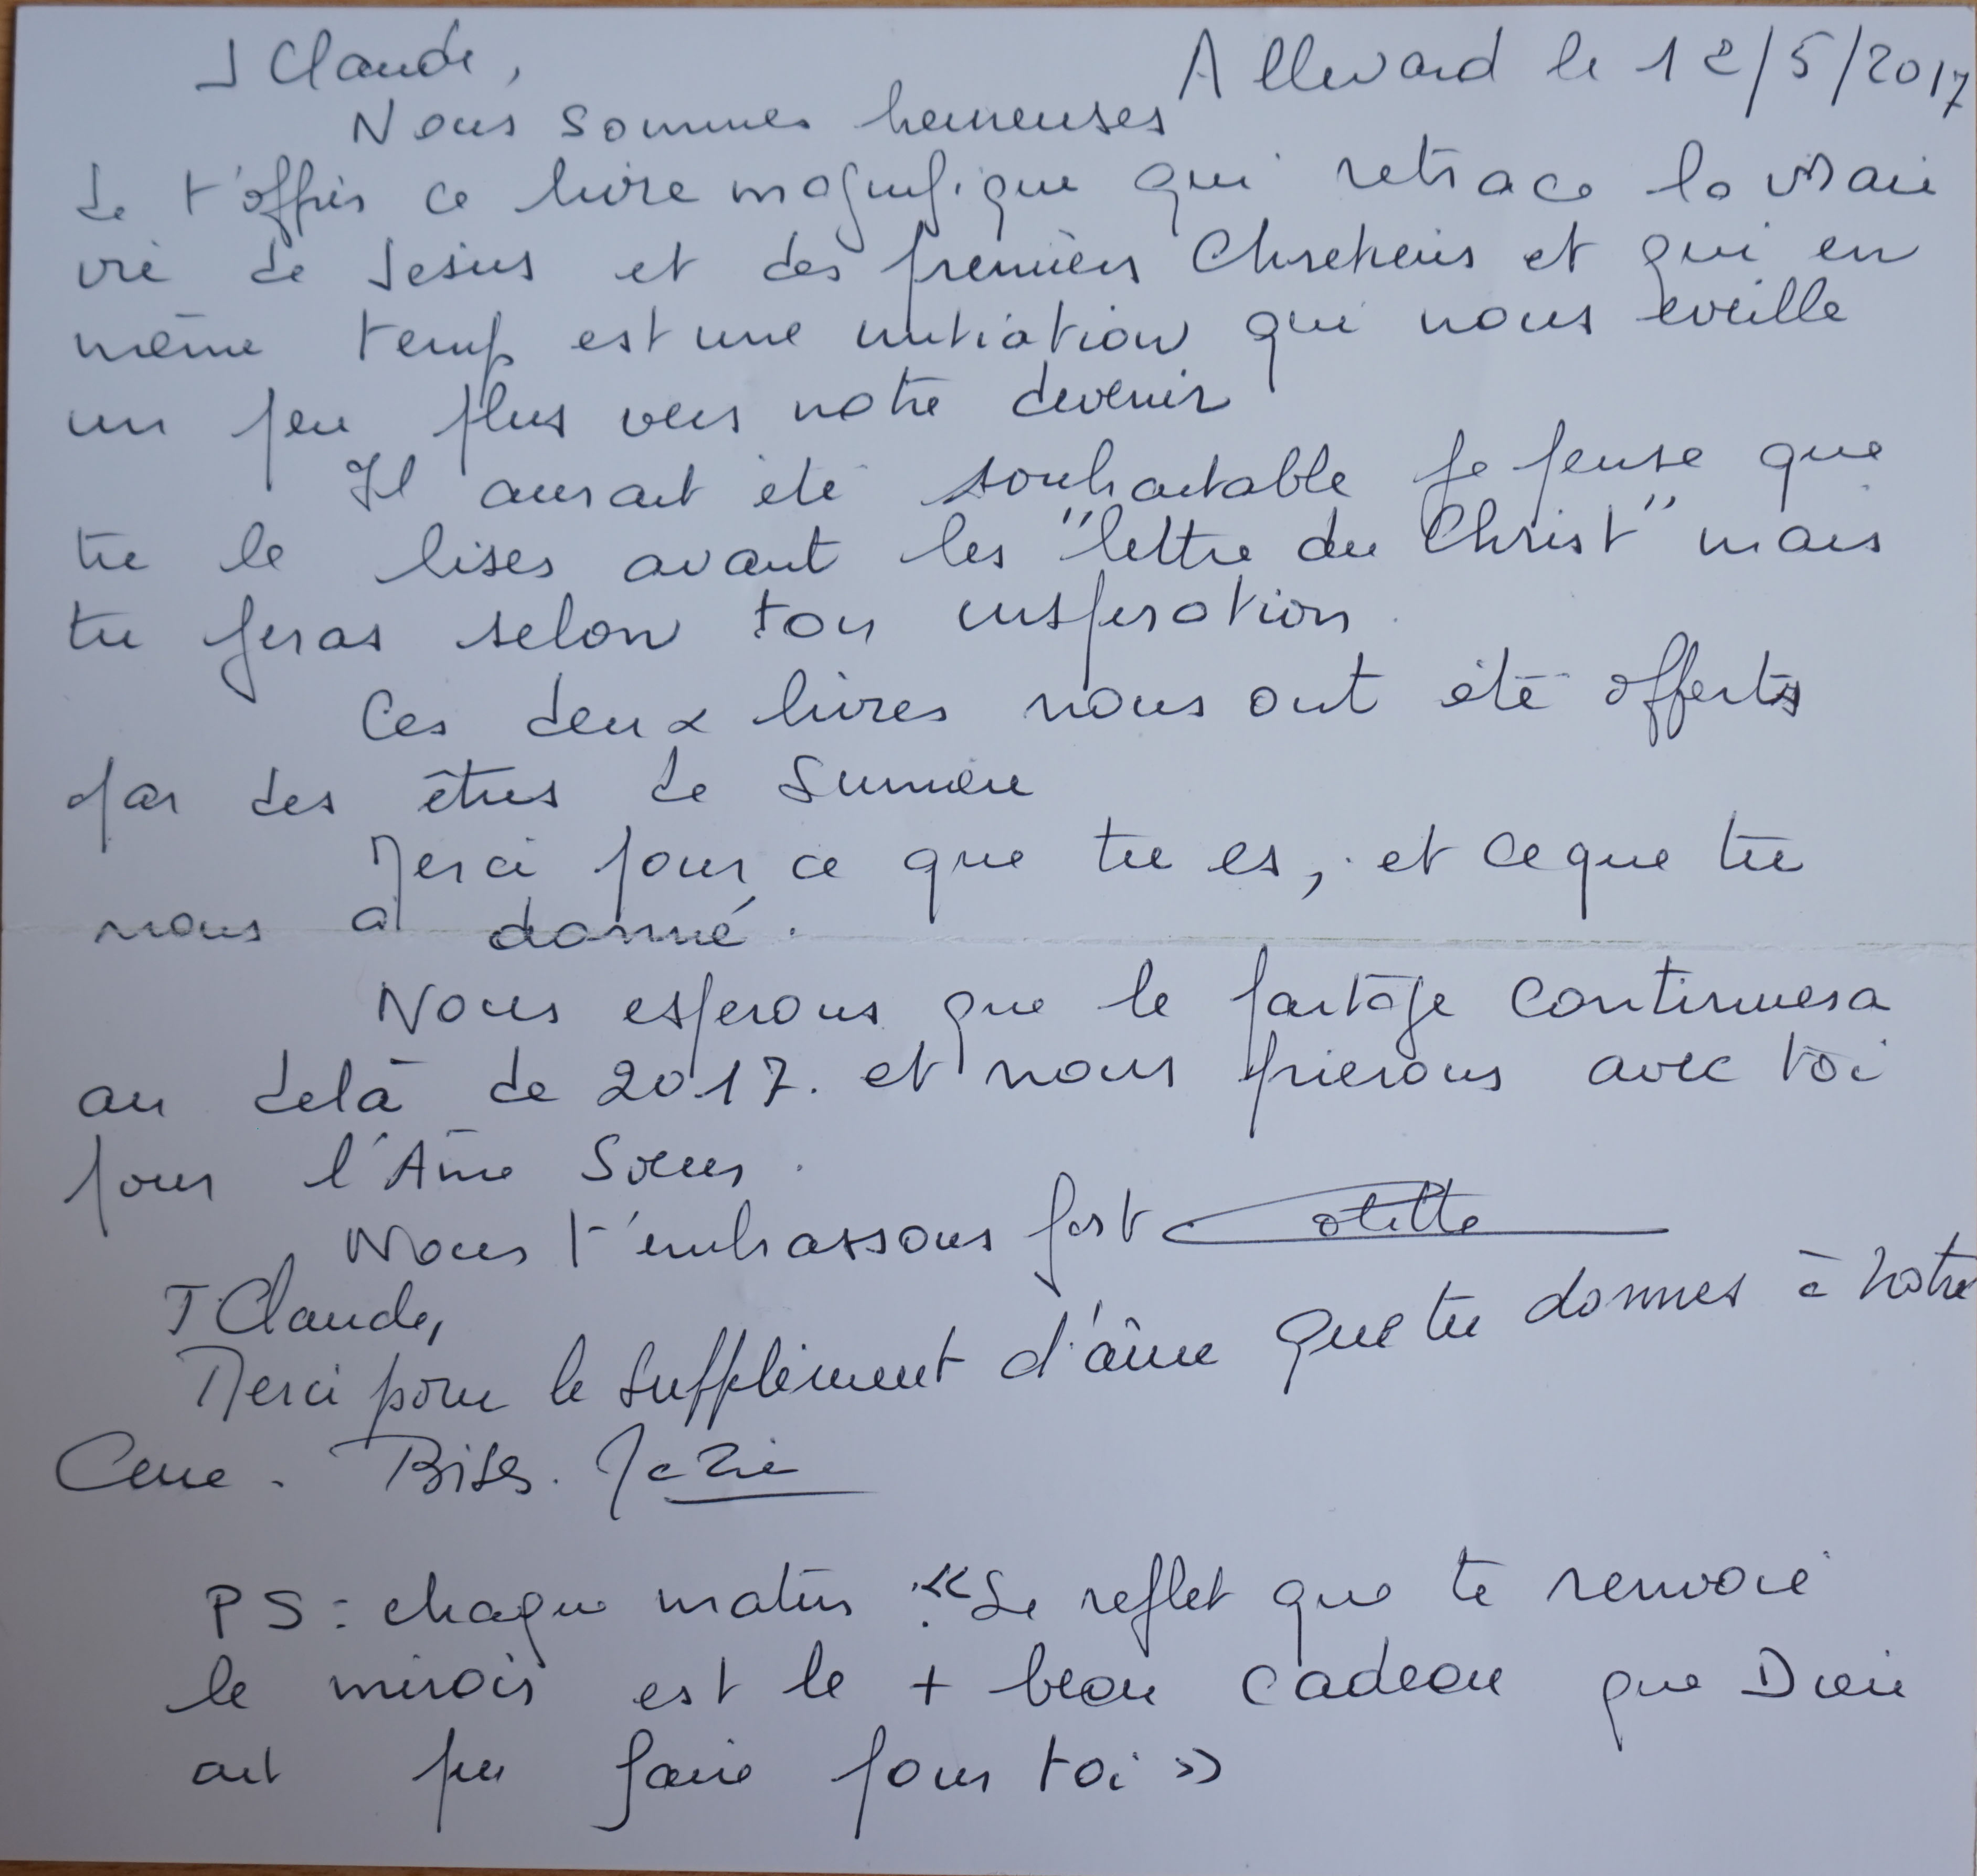 J Claude,
Allevard le 12/5/2017
Nous sommes heureuses
de t'offrir ce livre magnifique qui retrace la vraie
vie de Jesus et des premiers Chretiens et qui en
même temps est une initiation qui nous eveille
un peu plus vers notre devenir
Il aurait été souhaitable je pense que
tu le lises avant les "lettre du Christ" mais
tu feras selon ton inspiration.
Ces deux livres nous ont été offerts
par des êtres de Lumière
Merci pour ce que tu es, et ce que tu
nous a donné.
Nous esperons que le partage continuera
au delà de 2017. et nous prierons avec toi
pour l'Âme Soeur.
Nous t'embrassons fort
J Claude,
Merci pour le supplément d'âme que tu donnes à notre
Cure. Bises.
PS: chaque matin : «Le reflet que te renvoie
le miroir est le + beau cadeau que Dieu
ait pu faire pour toi»